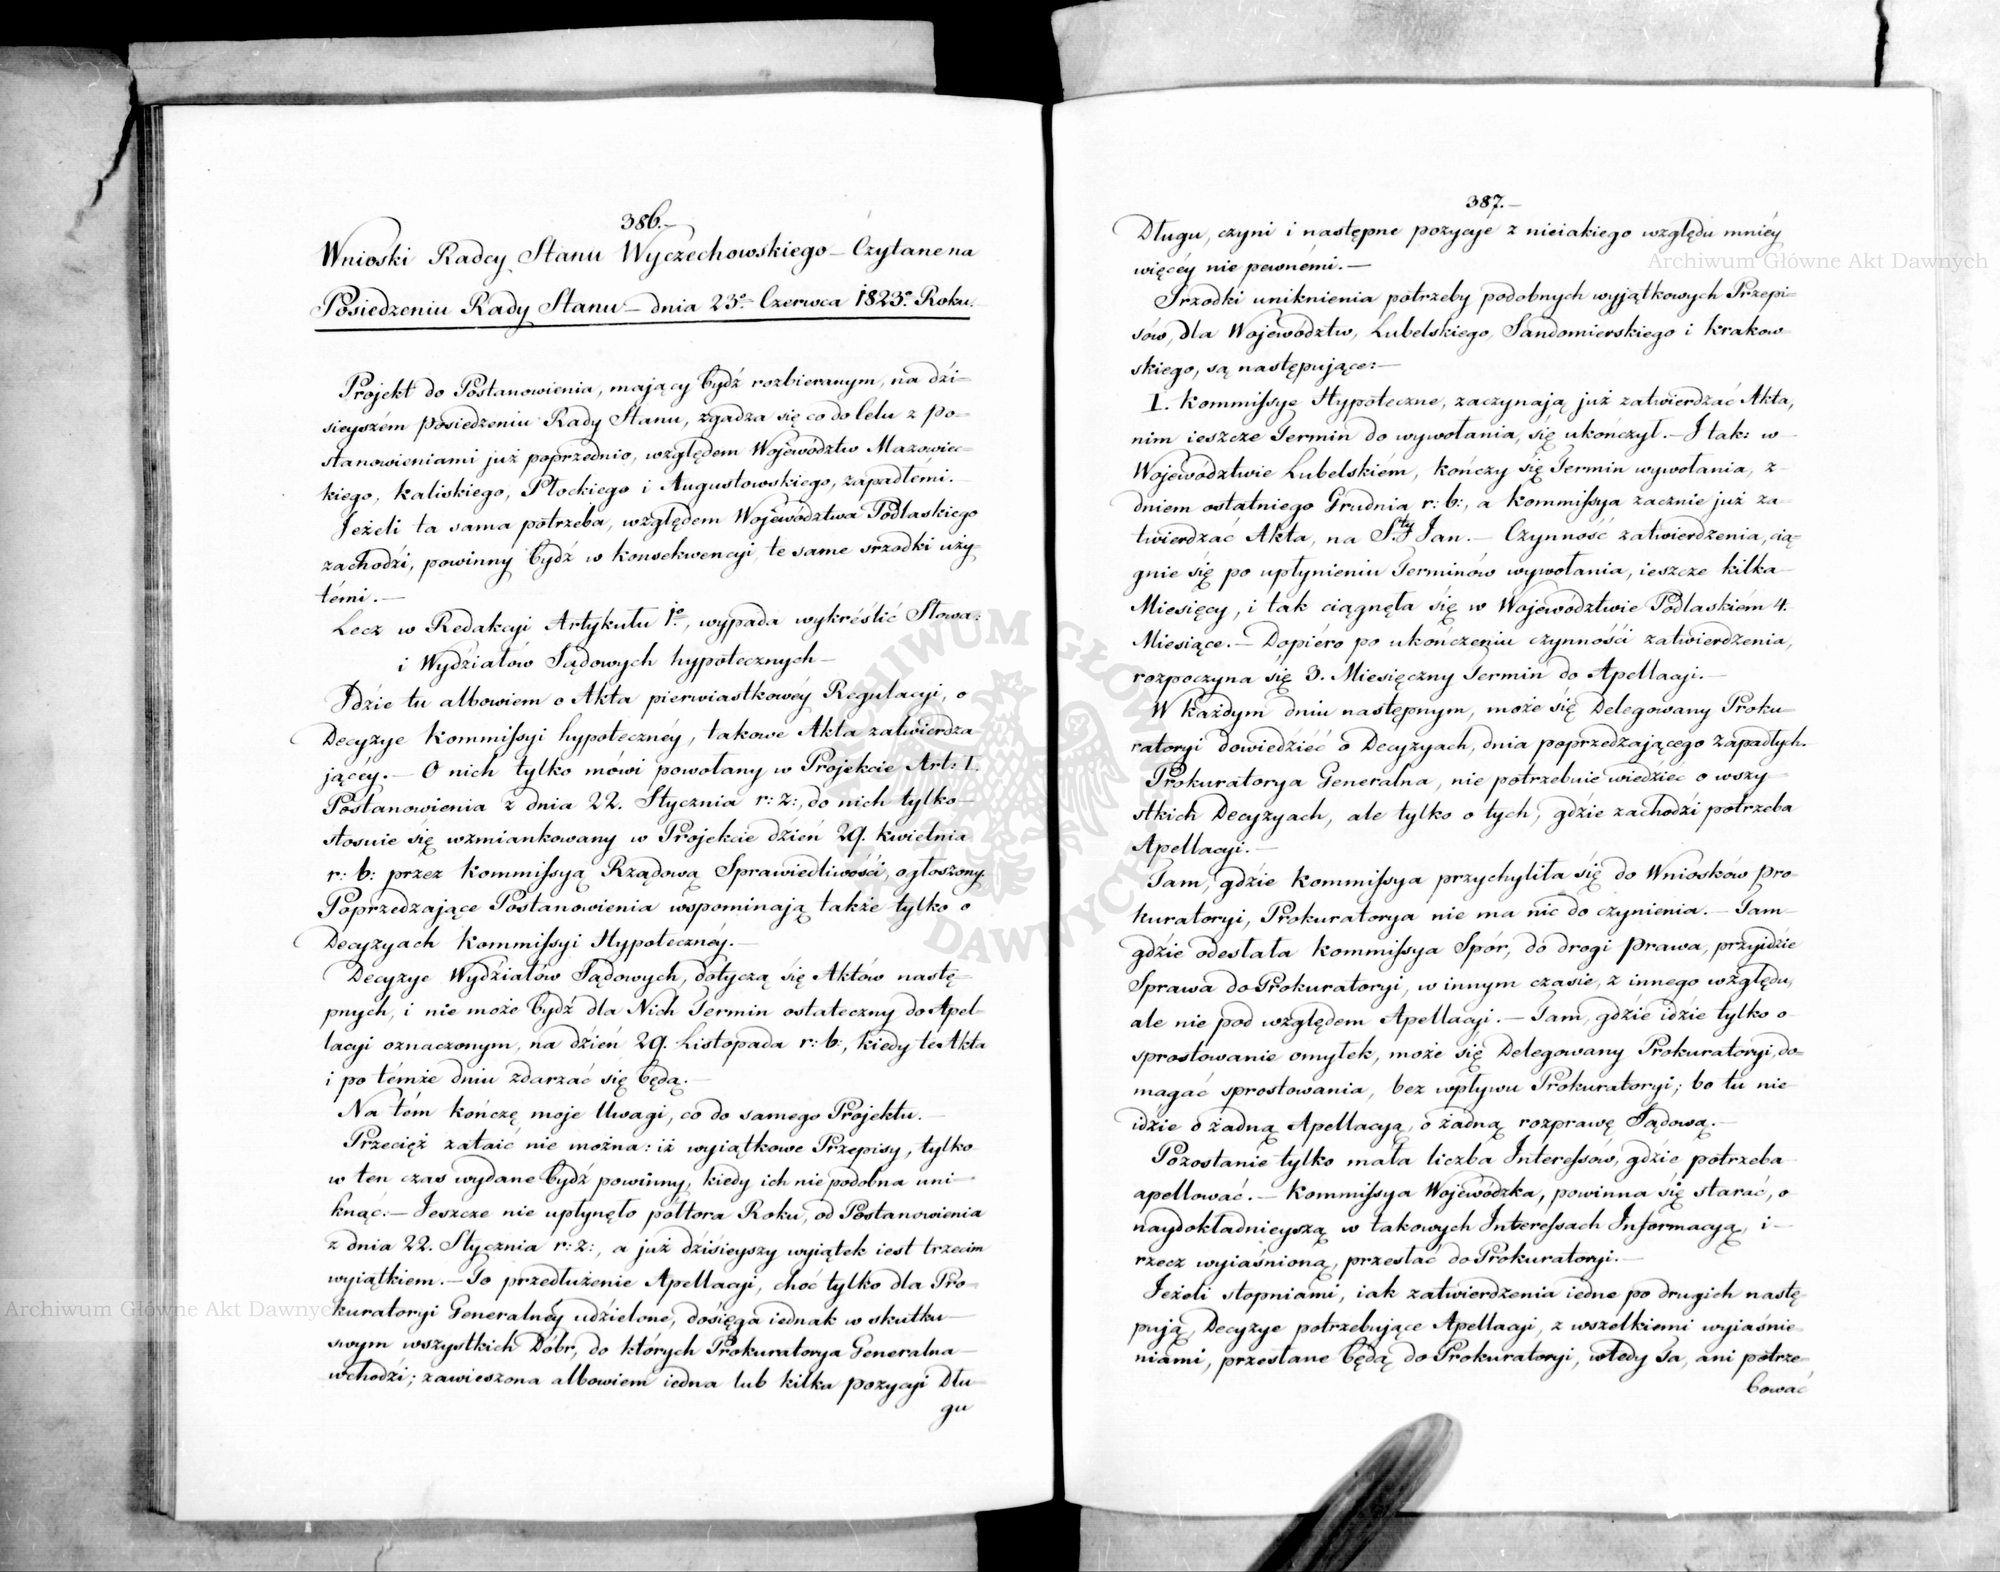 386.–
Wnioski Radcy Stanu Wyczechowskiego – Czytane na
Posiedzeniu Rady Stanu – dnia 23º Czerwca 1823º Roku.
Projekt do Postanowienia, maiący bydź rozbieranym, na dzi=
sieyszém posiedzeniu Rady Stanu, zgadza się co do celu z po=
stanowieniami już poprzednio, względem Województw Mazowiec=
kiego, Kaliskiego, Płockiego i Augustowskiego, zapadłemi.
Jeżeli ta sama potrzeba, względem Województwa Podlaskiego
zachodzi, powinny bydź w konsekwencyi te same srzodki uży=
témi.–
Lecz w Redakcyi Artykułu 1º, wypada wykréślić Słowa:
i Wydziałów Sądowych hypotecznych –
Idzie tu albowiem o Akta pierwiastkowéy Regulacyi, o
Decyzye Kommissyi hypotecznéy, takowe Akta zatwierdza
jącéy. – O nich tylko mówi powołany w Projekcie Art: I.
Postanowienia z dnia 22. Stycznia r: z:, do nich tylko –
stosuie się wzmiankowany w Projekcie dzień 29. Kwietnia
r: b: przez Kommissyą Rządową Sprawiedliwości, ogłoszony.
Poprzedzaiące Postanowienia wspominaią także tylko o
Decyzyach Kommissyi Hypotecznéy. –
Decyzye Wydziałów Sądowych, dotyczą się Aktów nastę=
pnych, i nie może bydź dla Nich Termin ostateczny do Apel=
lacyi oznaczonym, na dzień 29. Listopada r: b:, kiedy te Akta
i po témże dniu zdarzać się będą. –
Na tém kończę moje Uwagi, co do samego Projektu. –
Przecięż zataić nie można: iż wyiątkowe Przepisy, tylko
w ten czas wydane bydź powinny, kiedy ich nie podobna uni=
knąć. – Jeszcze nie upłynęło półtora Roku, od Postanowienia
z dnia 22. Stycznia r: z:, a już dzisieyszy wyiątek iest trzecim
wyiątkiem. – To przedłużenie Apellacyi, choć tylko dla Pro=
kuratoryi Generalnéy udzielone, dosięga iednak w skutku –
swym wszystkich Dóbr, do których Prokuratorya Generalna –
wchodzi; zawieszona albowiem iedna lub kilka pozycyi Dłu=
gu
387.–
Długu, czyni i następne pozycye z nieiakiego względu mniéy
więcéy nie pewnémi. –
Srzodki uniknienia potrzeby podobnych wyjątkowych Przepi=
sów, dla Województw, Lubelskiego, Sandomierskiego i Krakow
skiego, są następujące: –
I. Kommissye Hypoteczne, zaczynają już zatwierdzać Akta,
nim ieszcze Termin do wywołania, się ukończył. – I tak: w –
Województwie Lubelskiém, kończy się Termin wywołania, z –
dniem ostatniego Grudnia r: b:, a Kommissya zacznie już za=
twierdzać Akta, na S.ty Jan. – Czynność zatwierdzenia, cią=
gnie się po upłynieniu Terminów wywołania, ieszcze kilka –
Miesięcy, i tak ciągnęła się w Województwie Podlaskiém 4.
Miesiące. – Dopiéro po ukończeniu czynności zatwierdzenia,
rozpoczyna się 3. Miesięczny Termin do Apellacyi. –
W każdym dniu następnym, może się Delegowany Proku=
ratoryi dowiedzieć o Decyzyach, dnia poprzedzającego zapadłych.
Prokuratorya Generalna, nie potrzebuie wiedziec o wszy
stkich Decyzyach, ale tylko o tych, gdzie zachodzi potrzeba
Apellacyi. –
Tam, gdzie Kommissya przychyliła się do Wniosków Pro=
kuratoryi, Prokuratorya nie ma nic do czynienia. – Tam –
gdzie odesłała Kommissya Spór, do drogi Prawa, przyidzie
Sprawa do Prokuratoryi, w innym czasie, z innego względu,
ale nie pod względem Apellacyi. – Tam, gdzie idzie tylko o –
sprostowanie omyłek, może się Delegowany Prokuratoryi, do=
magać sprostowania, bez wpływu Prokuratoryi; bo tu nie
idzie o żadną Apellacyą, o żadną rozprawę Sądową. –
Pozostanie tylko mała liczba Interessów, gdzie potrzeba
apellować. – Kommissya Wojewódzka, powinna się starać, o
naydokładnieyszą w takowych Interessach Informacyą, i –
rzecz wyiaśnioną, przesłać do Prokuratoryi. –
Jeżeli stopniami, iak zatwierdzenia iedne po drugich nastę=
pują, Decyzye potrzebujące Apellacyi, z wszelkiemi wyiaśnie=
niami, przesłane będą do Prokuratoryi, wtedy Ta, ani potrze=
bować
Archiwum Główne Akt Dawnych
Archiwum Główne Akt Dawnych
ARCHIWUM GŁÓWNE AKT DAWNYCH